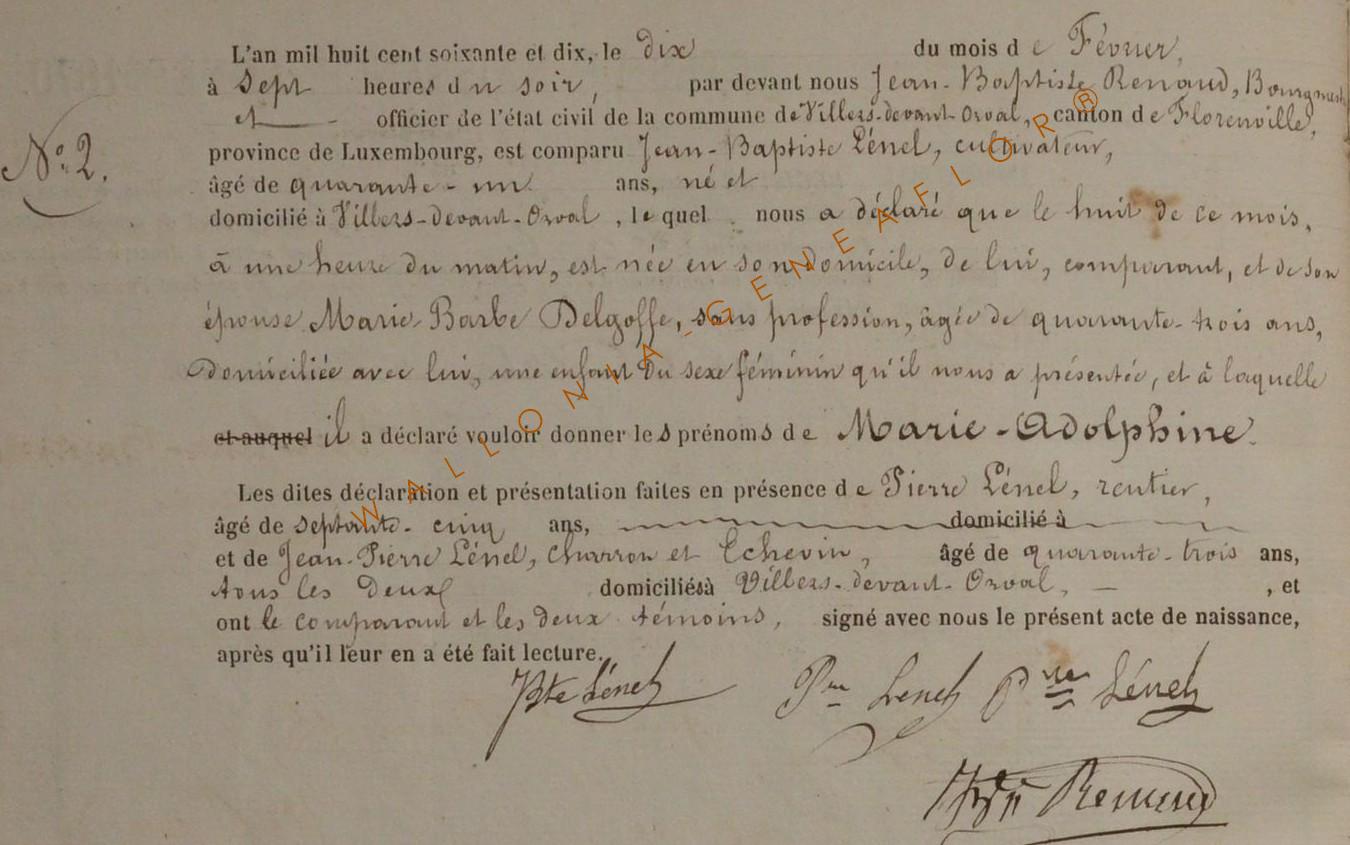 L'an mil huit cent soixante et dix, le dix du mois de Février,
à Sept heures du soir, par devant nous Jean-Baptiste Renaud, Bourgmestre
et officier de l'état civil de la commune de Villers-devant-Orval, canton de Florenville,
N° 2.
province de Luxembourg, est comparu Jean-Baptiste Lénel, cultivateur,
âgé de quarante-un ans, né et
domicilié à Villers-devant-Orval, lequel nous a déclaré que le huit de ce mois,
à une heure du matin, est née en son domicile, de lui, comparant, et de son
épouse Marie-Barbe Delgoffe, sans profession, âgée de quarante-trois ans,
domiciliée avec lui, une enfant du sexe féminin qu'il nous a présentée, et à laquelle
et auquel il a déclaré vouloir donner les prénoms de Marie-Adolphine.
Les dites déclaration et présentation faites en présence de Pierre Lénel, rentier,
âgé de septante-cinq ans, domicilié à
et de Jean-Pierre Lénel, charron et Echevin, âgé de quarante-trois ans,
tous les deux domiciliés à Villers-devant-Orval, — , et
ont le comparant et les deux témoins, signé avec nous le présent acte de naissance,
après qu'il leur en a été fait lecture.
Jbte Lénel Prre Lenel Prre Lénel
Renaud
WALLONIA-GENEAFLOR®